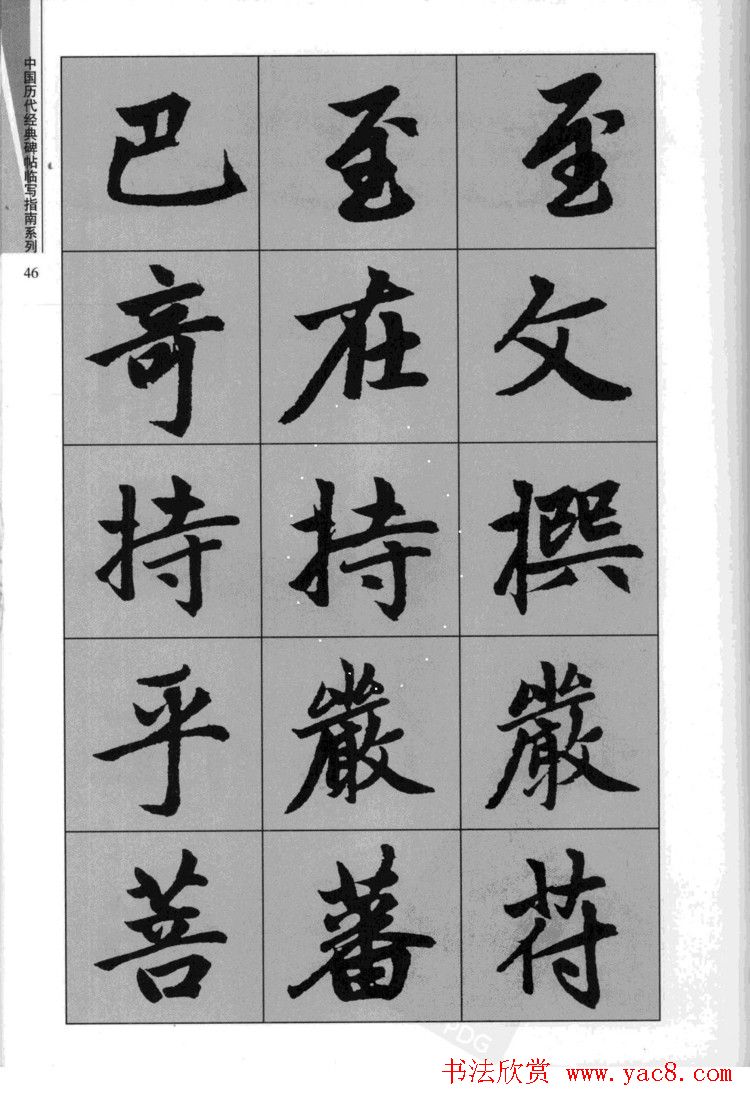 中国历代经典碑帖临写指南系列
46
至文撰嚴苻
至在持嚴蕃
巴奇持乎菩
PDG
书法欣赏 www.yac8.com